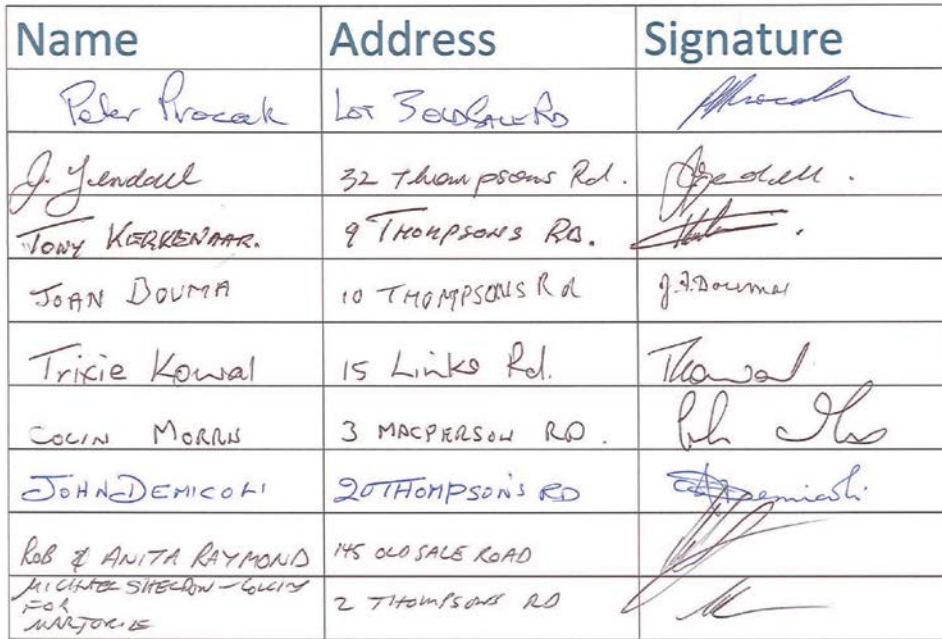 Name Address Signature
Peter Procak LOT 3 OLD SALE RD
J. Yendall 32 Thompsons Rd. JYendall.
TONY KERKENAAR. 9 THOMPSONS RD.
JOAN DOUMA 10 THOMPSONS Rd J.A.Douma
Trixie Kowal 15 Links Rd. TKowal
COLIN MORRIS 3 MACPHERSON RD.
JOHN DEMICOLI 20 THOMPSON'S RD Demicoli
ROB & ANITA RAYMOND 145 OLD SALE ROAD
MICHAEL SHELDON - 2 THOMPSONS RD
FOR
MARJORIE